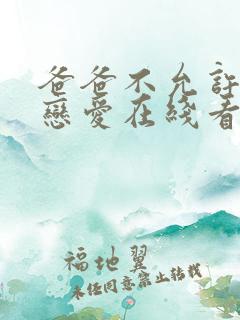 爸爸不允許
戀愛在綫看
福地翼
未经同意禁止转载